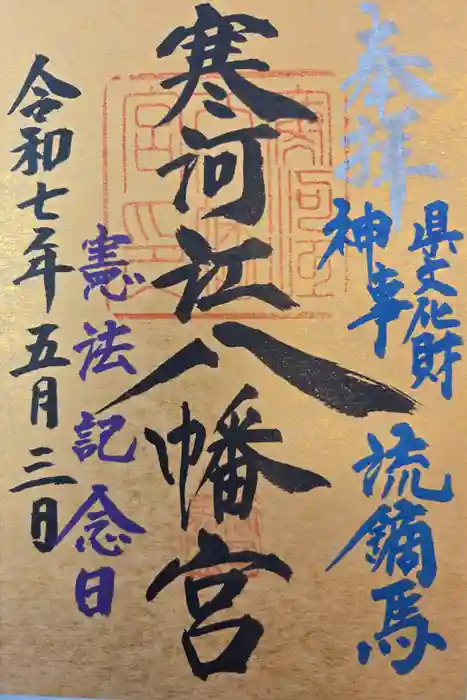 奉拝
県文化財
神事
流鏑馬
寒河江八幡宮
憲法記念日
令和七年五月三日